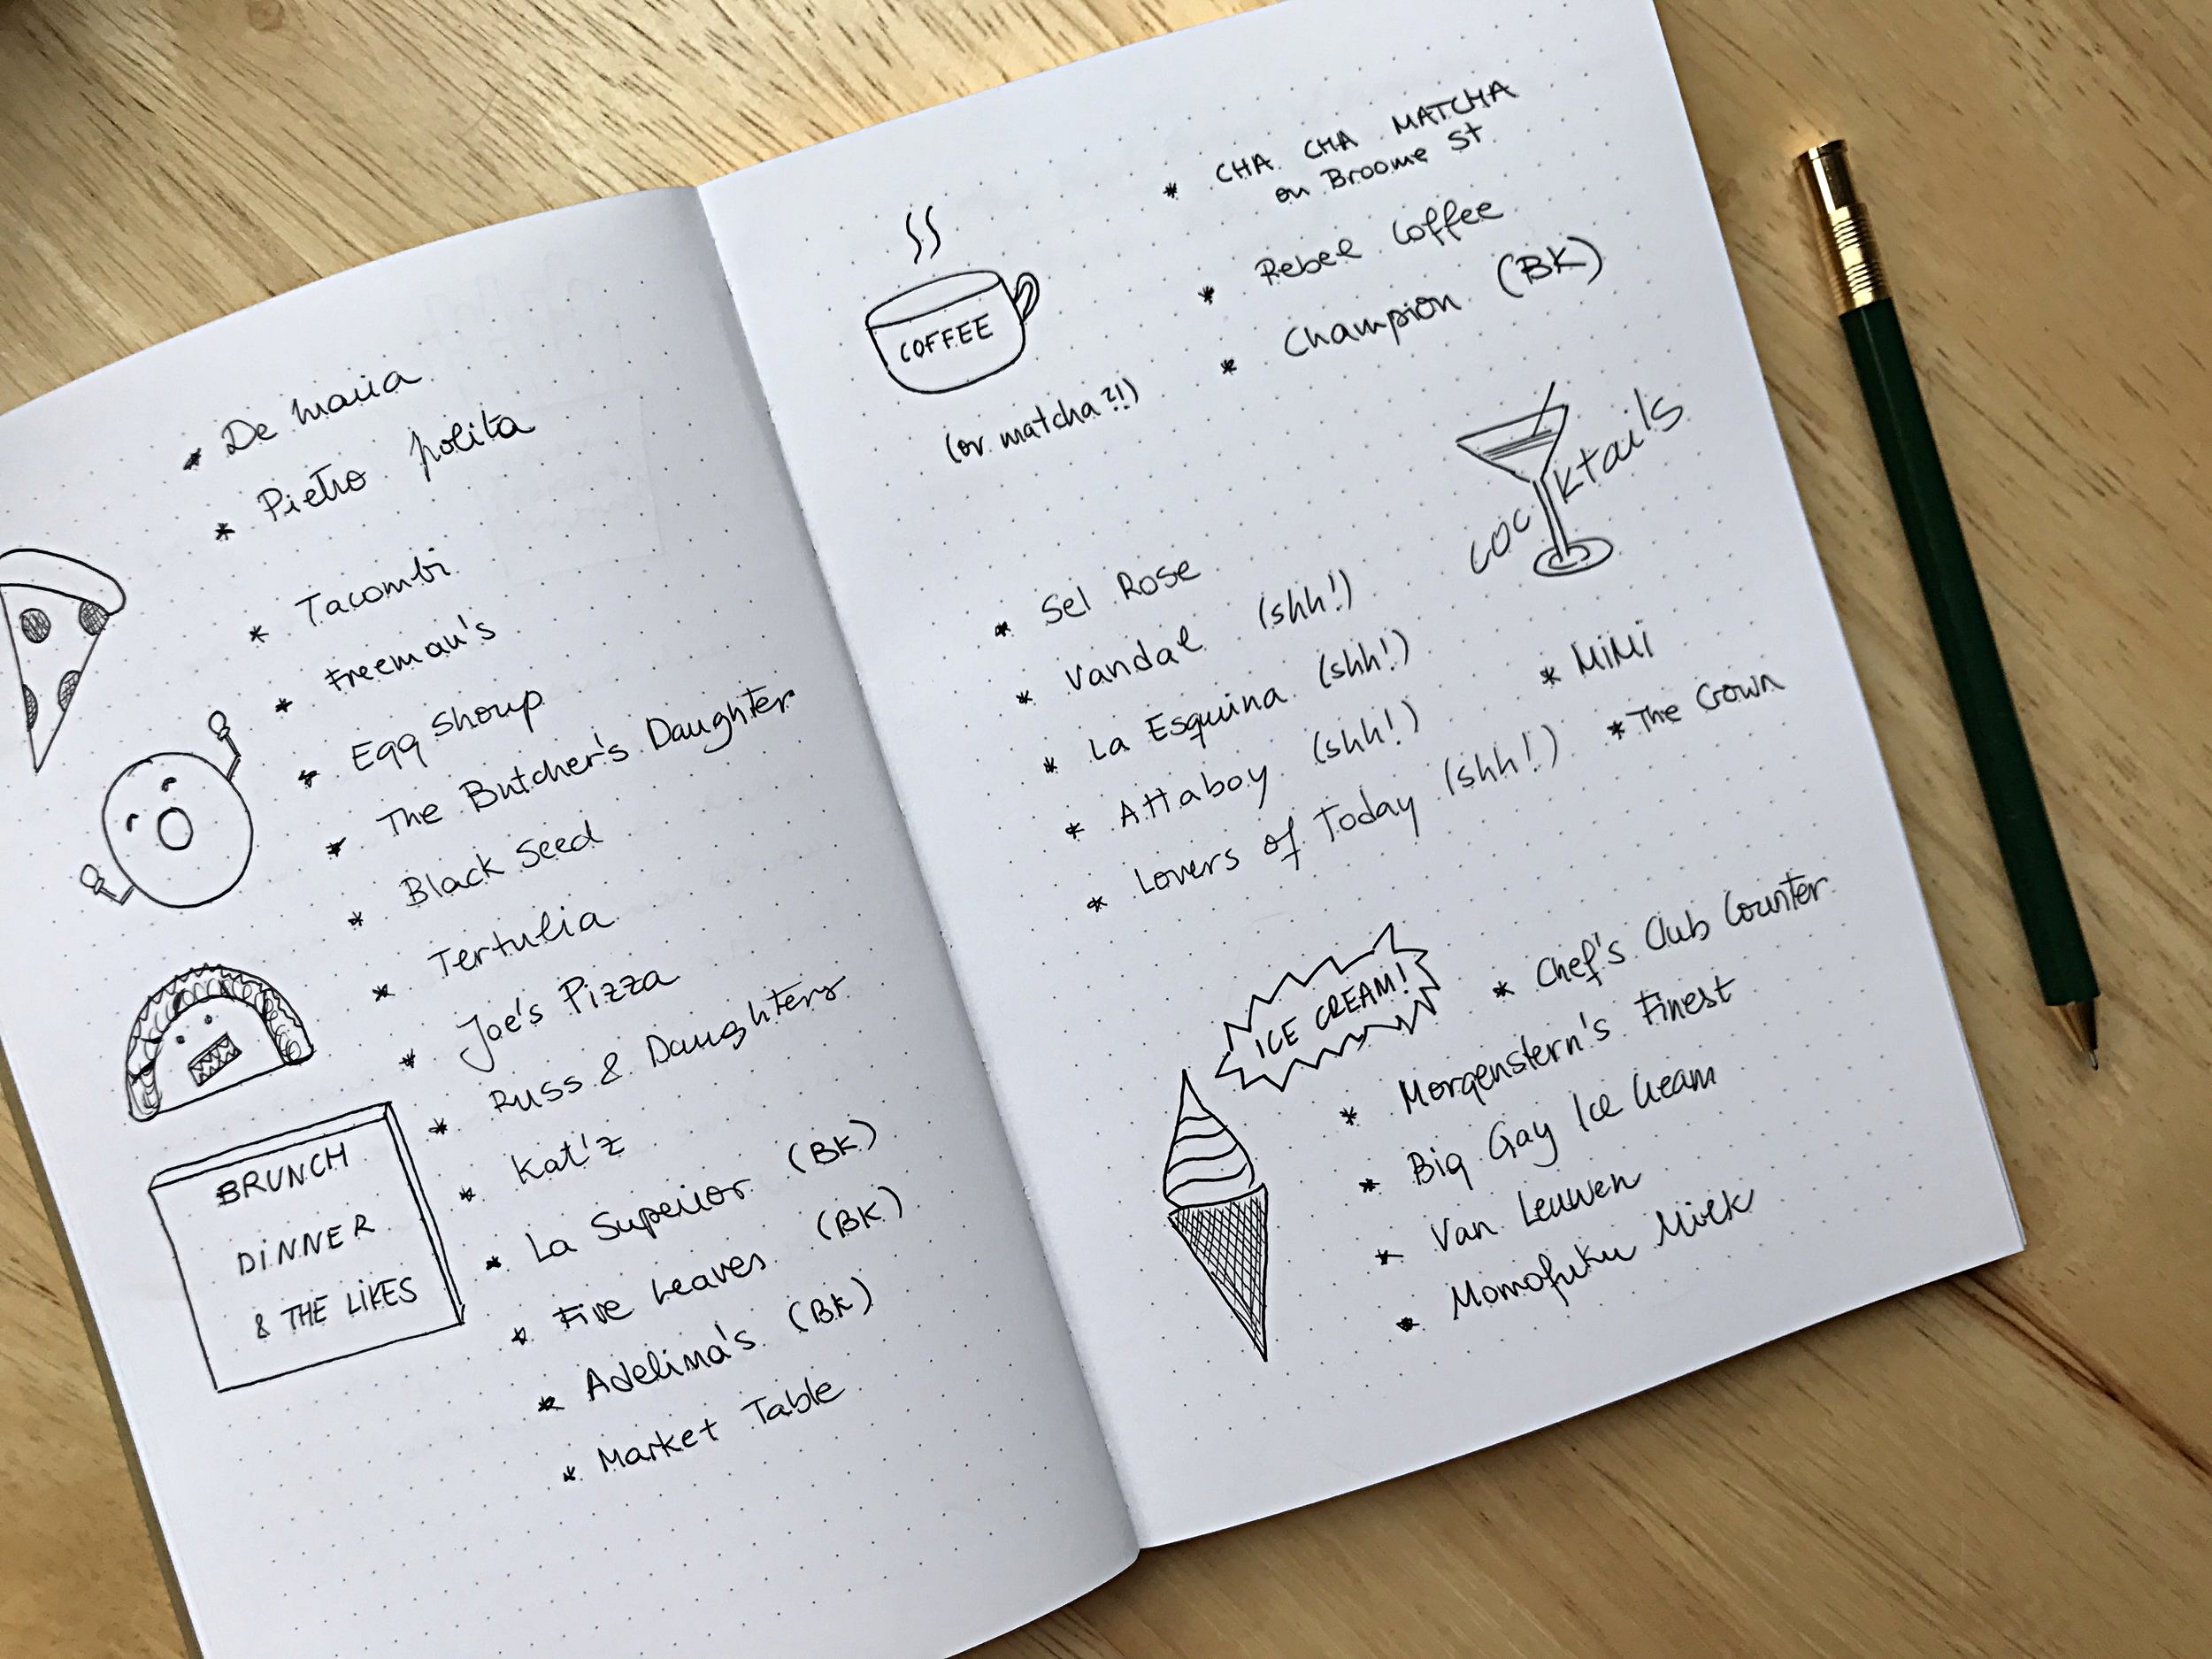 * De Maria
* Pietro Nolita
* Tacombi
* Freeman's
* Egg Shoup
* The Butcher's Daughter
* Black Seed
* Tertulia
* Joe's Pizza
* Russ & Daughters
* Kat'z
* La Superior (BK)
* Five Leaves (BK)
* Adelina's (BK)
* Market Table
BRUNCH
DINNER
& THE LIKES
COFFEE
(or matcha?!)
* CHA CHA MATCHA
on Broome St
* Rebel Coffee
* Champion (BK)
cocktails
* Sel Rose
* Vandal (shh!)
* La Esquina (shh!)
* Attaboy (shh!)
* Lovers of Today (shh!)
* MiMi
* The Crown
ICE CREAM!
* Chef's Club Counter
* Morgenstern's Finest
* Big Gay Ice Cream
* Van Leuwen
* Momofuku Milk